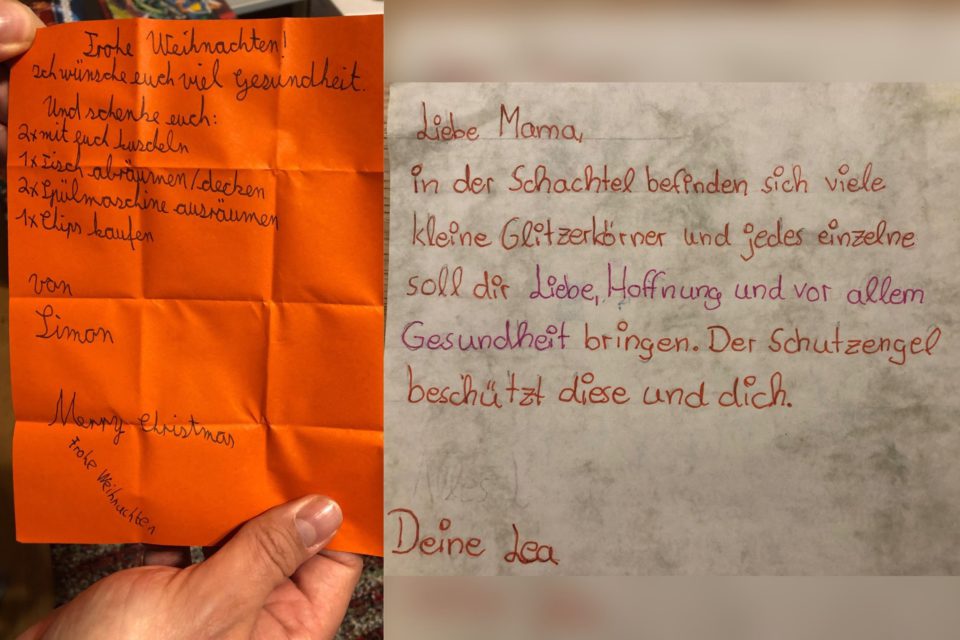 Frohe Weihnachten!
Ich wünsche euch viel Gesundheit.
Und schenke euch:
2x mit euch kuscheln
1x Tisch abräumen/decken
2x Spülmaschine ausräumen
1x Chips kaufen
von
Simon
Merry Christmas
Frohe Weihnachten
Liebe Mama,
in der Schachtel befinden sich viele
kleine Glitzerkörner und jedes einzelne
soll dir Liebe, Hoffnung und vor allem
Gesundheit bringen. Der Schutzengel
beschützt diese und dich.
Deine Lea